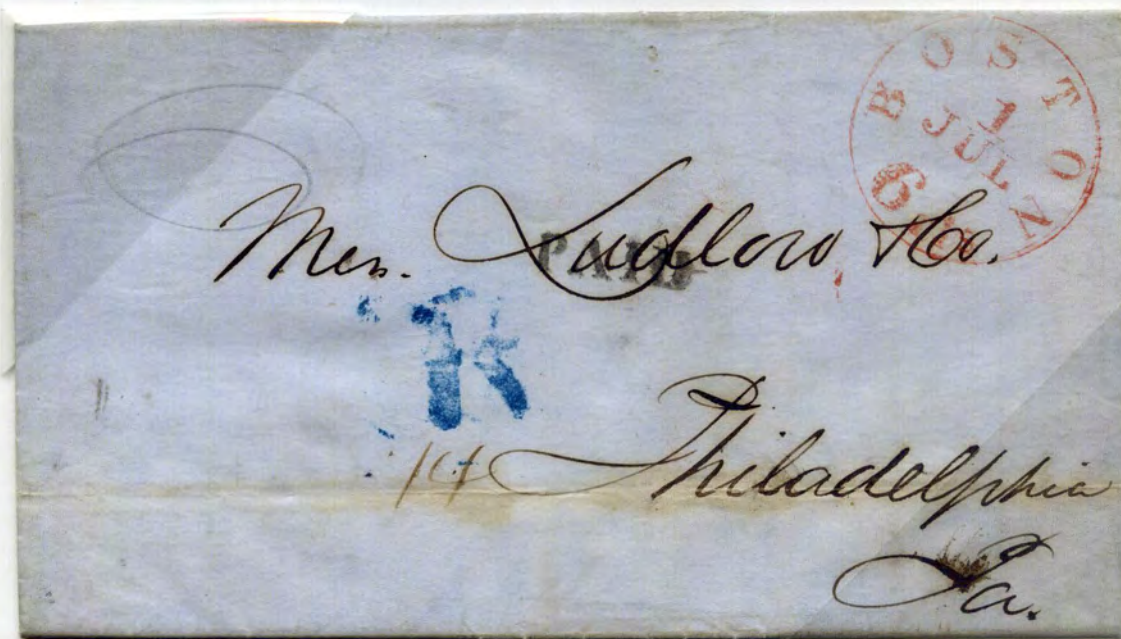 BOSTON
1
JUL
6 cts
PAID
Mess. Ludlow & Co.
R
14
Philadelphia
Pa.